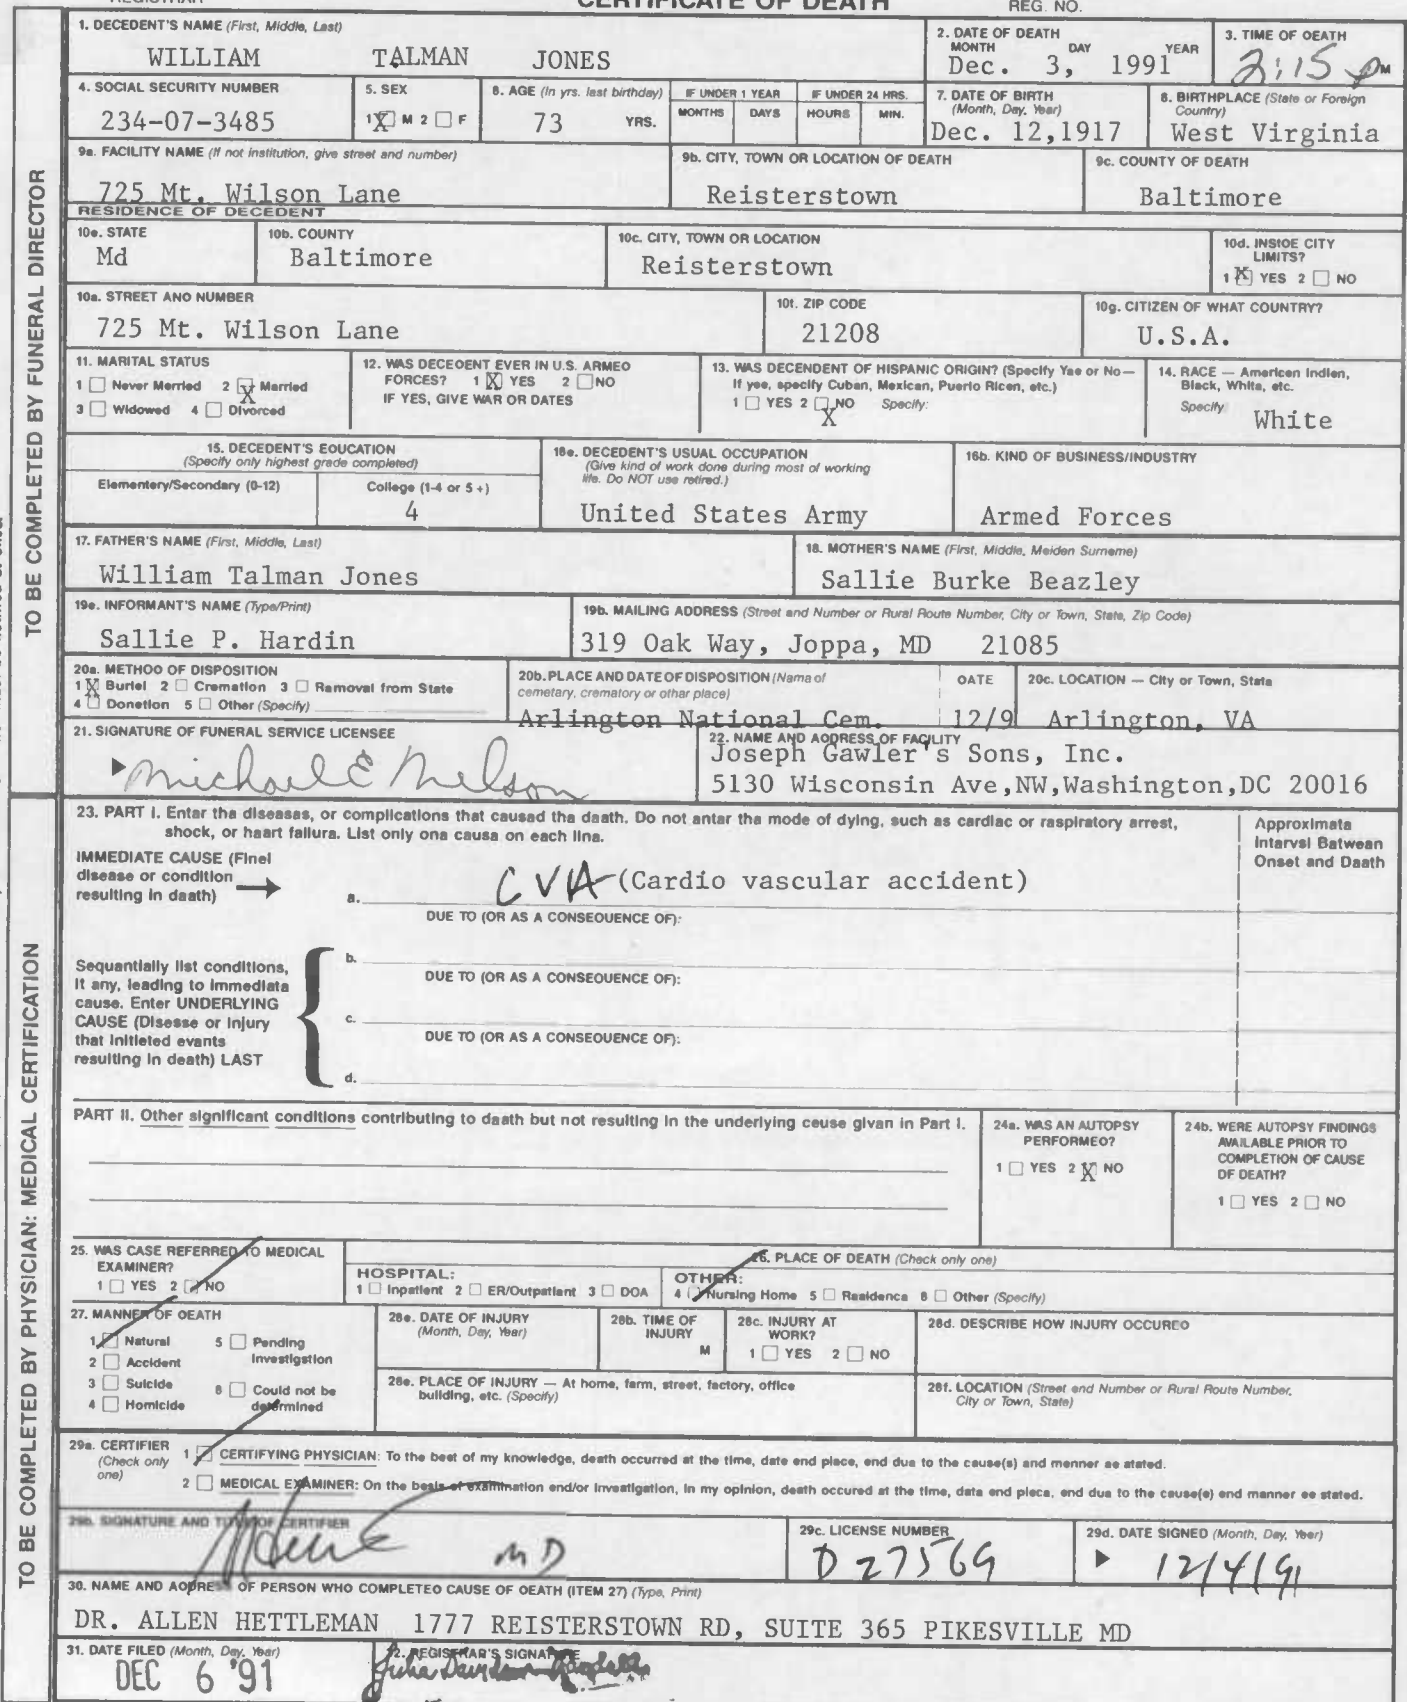 REGISTRAR
CERTIFICATE OF DEATH
REG. NO.
1. DECEDENT'S NAME (First, Middle, Last)
WILLIAM TALMAN JONES
2. DATE OF DEATH
MONTH DAY YEAR
Dec. 3, 1991
3. TIME OF DEATH
2:15 PM
4. SOCIAL SECURITY NUMBER
234-07-3485
5. SEX
1 X M 2 □ F
6. AGE (In yrs. last birthday)
73 YRS.
IF UNDER 1 YEAR
MONTHS DAYS
IF UNDER 24 HRS.
HOURS MIN.
7. DATE OF BIRTH
(Month, Day, Year)
Dec. 12,1917
8. BIRTHPLACE (State or Foreign
Country)
West Virginia
9a. FACILITY NAME (If not institution, give street and number)
725 Mt. Wilson Lane
9b. CITY, TOWN OR LOCATION OF DEATH
Reisterstown
9c. COUNTY OF DEATH
Baltimore
RESIDENCE OF DECEDENT
10a. STATE
Md
10b. COUNTY
Baltimore
10c. CITY, TOWN OR LOCATION
Reisterstown
10d. INSIDE CITY
LIMITS?
1 X YES 2 □ NO
10e. STREET AND NUMBER
725 Mt. Wilson Lane
10f. ZIP CODE
21208
10g. CITIZEN OF WHAT COUNTRY?
U.S.A.
11. MARITAL STATUS
1 □ Never Married 2 X Married
3 □ Widowed 4 □ Divorced
12. WAS DECEDENT EVER IN U.S. ARMED
FORCES? 1 X YES 2 □ NO
IF YES, GIVE WAR OR DATES
13. WAS DECENDENT OF HISPANIC ORIGIN? (Specify Yes or No—
If yes, specify Cuban, Mexican, Puerto Rican, etc.)
1 □ YES 2 X NO Specify:
14. RACE — American Indian,
Black, White, etc.
Specify
White
15. DECEDENT'S EDUCATION
(Specify only highest grade completed)
Elementary/Secondary (0-12)
College (1-4 or 5 +)
4
16a. DECEDENT'S USUAL OCCUPATION
(Give kind of work done during most of working
life. Do NOT use retired.)
United States Army
16b. KIND OF BUSINESS/INDUSTRY
Armed Forces
17. FATHER'S NAME (First, Middle, Last)
William Talman Jones
18. MOTHER'S NAME (First, Middle, Maiden Surname)
Sallie Burke Beazley
19a. INFORMANT'S NAME (Type/Print)
Sallie P. Hardin
19b. MAILING ADDRESS (Street and Number or Rural Route Number, City or Town, State, Zip Code)
319 Oak Way, Joppa, MD 21085
20a. METHOD OF DISPOSITION
1 X Burial 2 □ Cremation 3 □ Removal from State
4 □ Donation 5 □ Other (Specify)
20b. PLACE AND DATE OF DISPOSITION (Name of
cemetary, crematory or other place)
Arlington National Cem.
DATE
12/9
20c. LOCATION — City or Town, State
Arlington, VA
21. SIGNATURE OF FUNERAL SERVICE LICENSEE
Michael E Nelson
22. NAME AND ADDRESS OF FACILITY
Joseph Gawler's Sons, Inc.
5130 Wisconsin Ave,NW,Washington,DC 20016
TO BE COMPLETED BY FUNERAL DIRECTOR
23. PART I. Enter the diseases, or complications that caused the death. Do not enter the mode of dying, such as cardiac or respiratory arrest,
shock, or heart failure. List only one cause on each line.
Approximate
Interval Between
Onset and Death
IMMEDIATE CAUSE (Final
disease or condition
resulting in death)
a. CVA (Cardio vascular accident)
DUE TO (OR AS A CONSEQUENCE OF):
Sequentially list conditions,
if any, leading to immediate
cause. Enter UNDERLYING
CAUSE (Disease or injury
that initiated events
resulting in death) LAST
b.
DUE TO (OR AS A CONSEQUENCE OF):
c.
DUE TO (OR AS A CONSEQUENCE OF):
d.
PART II. Other significant conditions contributing to death but not resulting in the underlying cause given in Part I.
24a. WAS AN AUTOPSY
PERFORMED?
1 □ YES 2 X NO
24b. WERE AUTOPSY FINDINGS
AVAILABLE PRIOR TO
COMPLETION OF CAUSE
OF DEATH?
1 □ YES 2 □ NO
25. WAS CASE REFERRED TO MEDICAL
EXAMINER?
1 □ YES 2 ☑ NO
26. PLACE OF DEATH (Check only one)
HOSPITAL:
1 □ Inpatient 2 □ ER/Outpatient 3 □ DOA
OTHER:
4 ☑ Nursing Home 5 □ Residence 6 □ Other (Specify)
27. MANNER OF DEATH
1 ☑ Natural 5 □ Pending
Investigation
2 □ Accident
3 □ Suicide 6 □ Could not be
determined
4 □ Homicide
28a. DATE OF INJURY
(Month, Day, Year)
28b. TIME OF
INJURY
M
28c. INJURY AT
WORK?
1 □ YES 2 □ NO
28d. DESCRIBE HOW INJURY OCCURED
28e. PLACE OF INJURY — At home, farm, street, factory, office
building, etc. (Specify)
28f. LOCATION (Street and Number or Rural Route Number,
City or Town, State)
29a. CERTIFIER
(Check only
one)
1 ☑ CERTIFYING PHYSICIAN: To the best of my knowledge, death occurred at the time, date and place, and due to the cause(s) and manner as stated.
2 □ MEDICAL EXAMINER: On the basis of examination and/or investigation, in my opinion, death occured at the time, date and place, and due to the cause(s) and manner as stated.
29b. SIGNATURE AND TITLE OF CERTIFIER
MD
29c. LICENSE NUMBER
D 27569
29d. DATE SIGNED (Month, Day, Year)
12/4/91
30. NAME AND ADDRESS OF PERSON WHO COMPLETED CAUSE OF DEATH (ITEM 27) (Type, Print)
DR. ALLEN HETTLEMAN 1777 REISTERSTOWN RD, SUITE 365 PIKESVILLE MD
31. DATE FILED (Month, Day, Year)
DEC 6 '91
32. REGISTRAR'S SIGNATURE
TO BE COMPLETED BY PHYSICIAN: MEDICAL CERTIFICATION